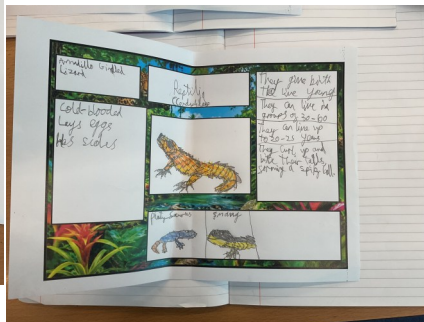 Armadillo Girdled
Lizard
Cold-blooded
Lays eggs
Has scales
They give birth
live young
They can live in
groups of 30-60
They can live up
to 20-25 years
They curl up and
bite their tails,